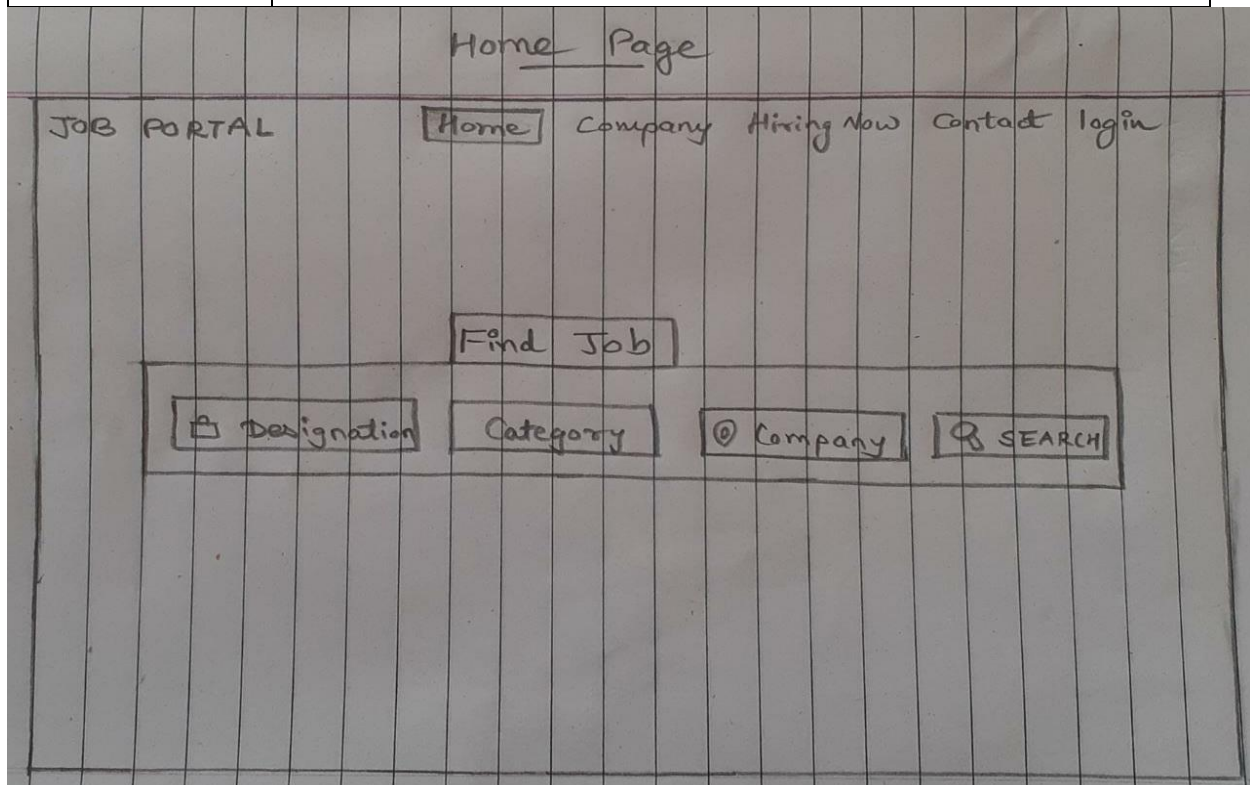 Home Page
JOB PORTAL Home Company Hiring Now Contact login
Find Job
Designation Category Company SEARCH